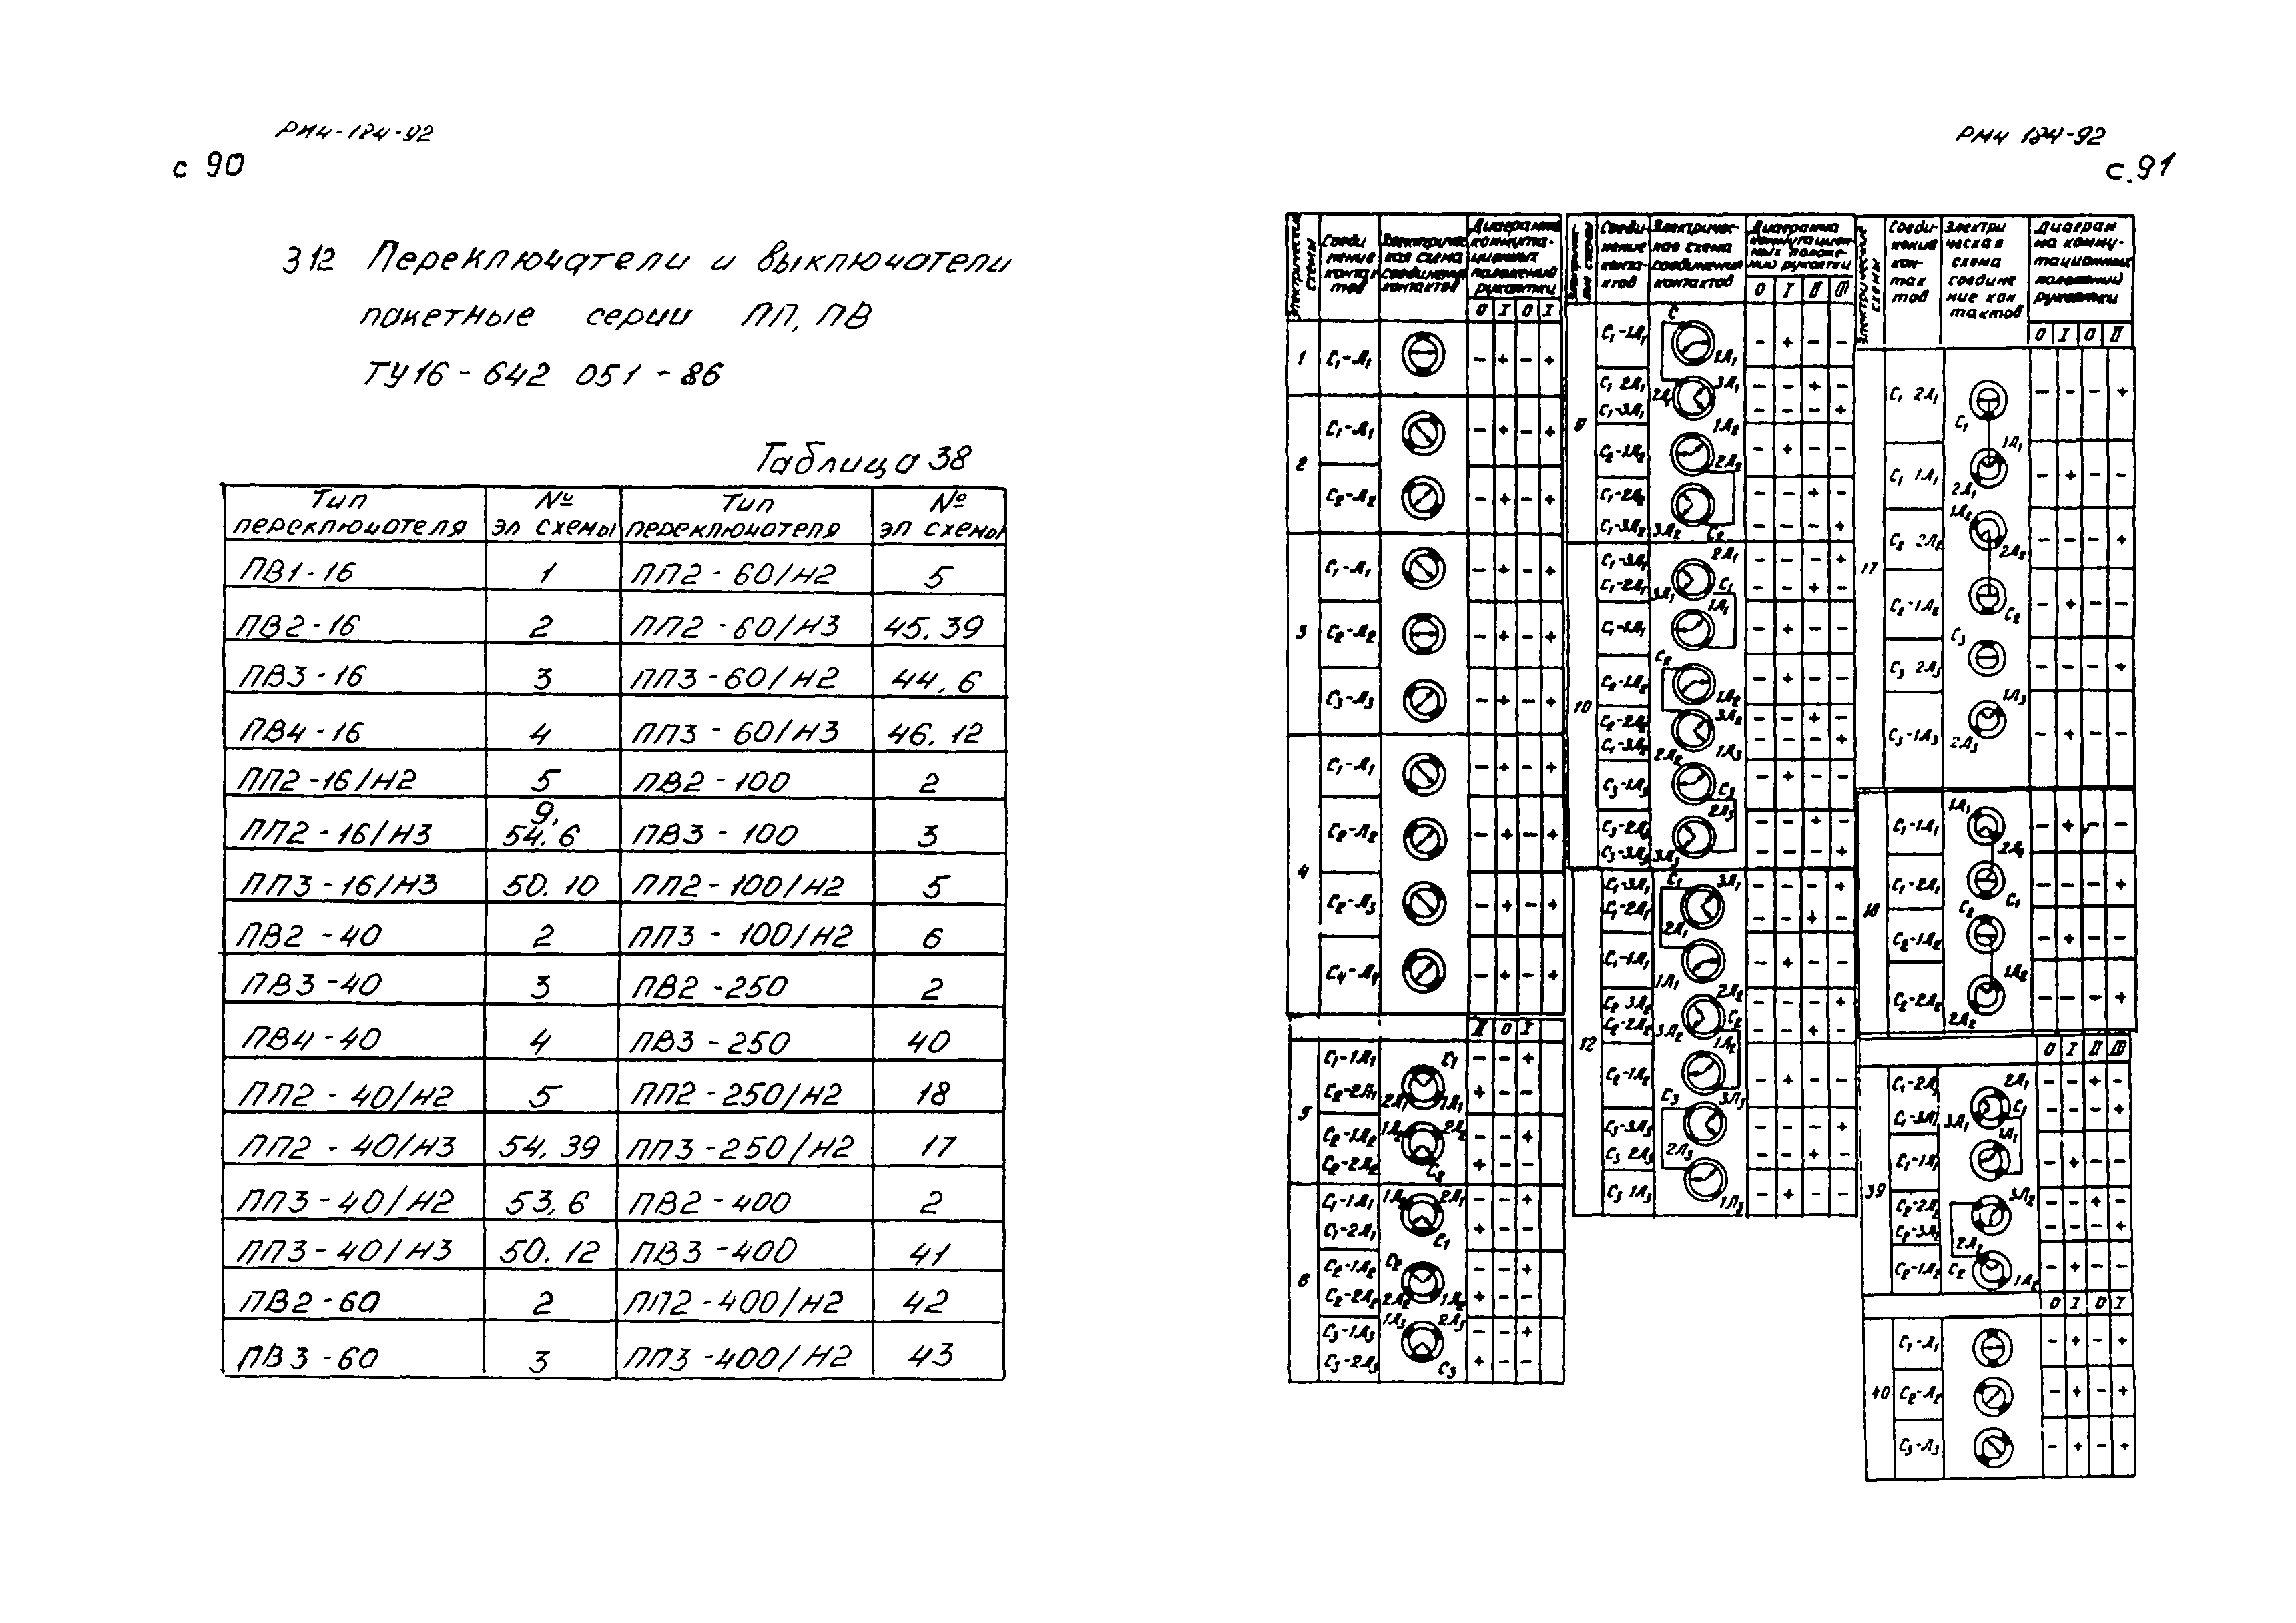 РМ4-184-92
с 90
312 Переключатели и выключатели
пакетные серии ПП, ПВ
ТУ16-642 051-86
Таблица 38
Тип переключателя № эл схемы Тип переключателя № эл схемы
ПВ1-16 1 ПП2-60/Н2 5
ПВ2-16 2 ПП2-60/Н3 45, 39
ПВ3-16 3 ПП3-60/Н2 44, 6
ПВ4-16 4 ПП3-60/Н3 46, 12
ПП2-16/Н2 5 ПВ2-100 2
ПП2-16/Н3 9, 54. 6 ПВ3-100 3
ПП3-16/Н3 50. 10 ПП2-100/Н2 5
ПВ2-40 2 ПП3-100/Н2 6
ПВ3-40 3 ПВ2-250 2
ПВ4-40 4 ПВ3-250 40
ПП2-40/Н2 5 ПП2-250/Н2 18
ПП2-40/Н3 54, 39 ПП3-250/Н2 17
ПП3-40/Н2 53, 6 ПВ2-400 2
ПП3-40/Н3 50. 12 ПВ3-400 41
ПВ2-60 2 ПП2-400/Н2 42
ПВ3-60 3 ПП3-400/Н2 43
РМ4 184-92
с.91
Электрические схемы
Соединение контактов
Электрическая схема соединения контактов
Диаграмма коммутационных положений рукоятки
О I О I
1 С1-Л1 - + - +
2 С1-Л1 - + - +
С2-Л2 - + - +
3 С1-Л1 - + - +
С2-Л2 - + - +
С3-Л3 - + - +
4 С1-Л1 - + - +
С2-Л2 - + - +
С2-Л3 - + - +
С4-Л4 - + - +
II О I
5 С1-1Л1 С1 - - +
С2-2Л1 2Л1 1Л1 + - -
С2-1Л2 1Л2 2Л2 - - +
С2-2Л2 С2 + - -
6 С1-1Л1 1Л1 2Л1 - - +
С1-2Л1 С1 + - -
С2-1Л2 С2 - - +
С2-2Л2 2Л2 1Л2 + - -
С3-1Л3 1Л3 2Л3 - - +
С3-2Л3 С3 + - -
Соединение контактов
Электрическая схема соединения контактов
Диаграмма коммутационных положений рукоятки
О I II III
9 С1-1Л1 С 1Л1 - + - -
С1 2Л1 2Л1 3Л1 - - + -
С1-3Л1 - - - +
С2-1Л2 1Л2 2Л2 - + - -
С1-2Л2 - - + -
С1-3Л2 3Л2 С2 - - - +
10 С1-3Л1 2Л1 - - - +
С1-2Л1 3Л1 С1 - - + -
С1-1Л1 1Л1 - + - -
С2-1Л2 С2 1Л2 - + - -
С2-2Л2 3Л2 - - + -
С1-3Л2 2Л2 1Л3 - - - +
С3-1Л3 С3 - + - -
С3-2Л3 2Л3 - - + -
С3-3Л3 3Л3 - - - +
12 С1-3Л1 С1 3Л1 - - - +
С1-2Л1 2Л1 - - + -
С1-1Л1 1Л1 - + - -
С2 3Л2 2Л2 - - - +
С2-2Л2 3Л2 С2 - - + -
С2-1Л2 1Л2 - + - -
С3-3Л3 С3 3Л3 - - - +
С3 2Л3 2Л3 - - + -
С3 1Л3 1Л3 - + - -
Электрические схемы
Соединение контактов
Электрическая схема соединение контактов
Диаграмма коммутационных положений рукоятки
О I О II
17 С1 2Л1 С1 - - - +
С1 1Л1 1Л1 2Л1 - + - -
С2 2Л2 1Л2 2Л2 - - - +
С2-1Л2 С2 - + - -
С3 2Л3 С3 - - - +
С3-1Л3 1Л3 2Л3 - + - -
18 С1-1Л1 1Л1 2Л1 - + - -
С1-2Л1 С1 - - - +
С2-1Л2 С2 - + - -
С2-2Л2 1Л2 2Л2 - - - +
О I II III
39 С1-2Л1 2Л1 - - + -
С1-3Л1 3Л1 С1 - - - +
С1-1Л1 1Л1 - + - -
С2-2Л2 3Л2 - - + -
С2-3Л2 2Л2 - - - +
С2-1Л2 С2 1Л2 - + - -
О I О I
40 С1-Л1 - + - +
С2-Л2 - + - +
С3-Л3 - + - +